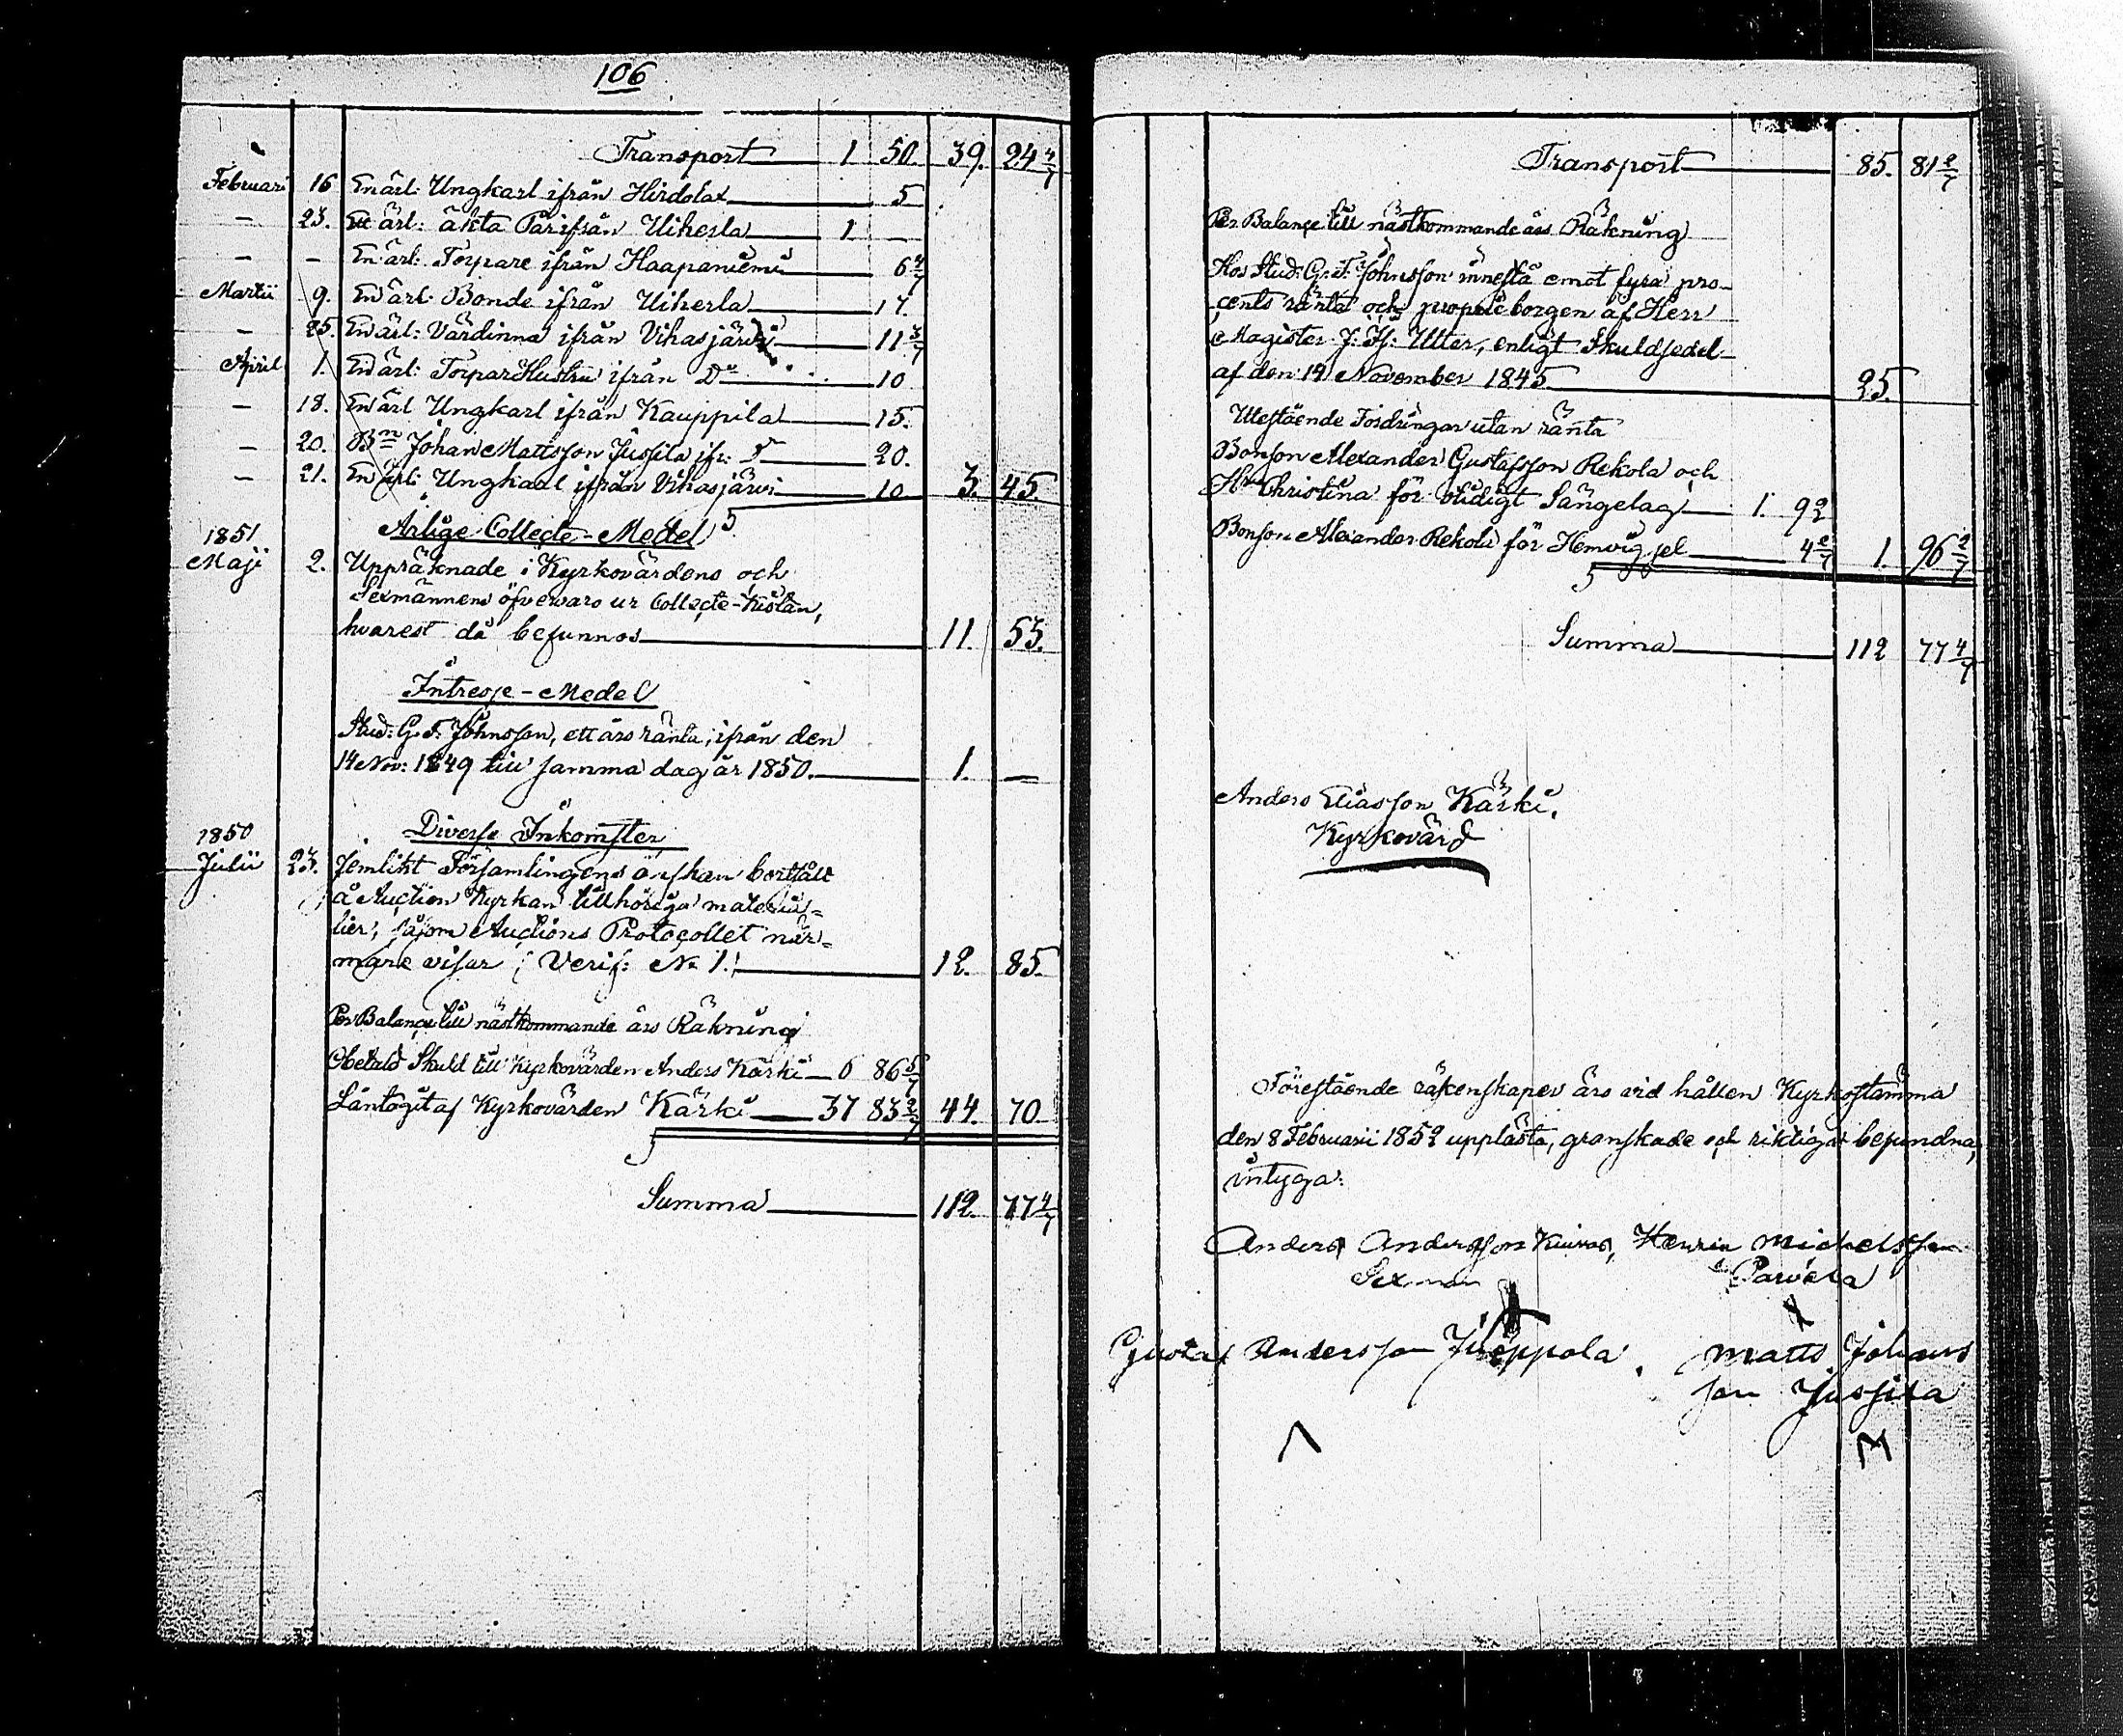 106
Transport 1 50. 39. 24 4/7
Februari 16 En ärl: Ungkarl ifrån Hirdolax 5
— 23. Ett ärl: äkta Par ifrån Uiherla 1. —
— — En ärl: Torpare ifrån Haapaniemi 6 4/7
Martii 9. En ärl: Bonde ifrån Uiherla 17.
— 25. En ärl: Värdinna ifrån Vihasjärvi 11 3/7
April 1. En ärl: Torpar Hustru ifrån Do 10
— 18. En ärl Ungkarl ifrån Kauppila 15.
— 20. Bn Johan Mattsson Jussila ifr: Do 20.
— 21. En ärl: Ungkarl ifrån Vihasjärvi 10 3. 45.
Årlige Collecte-Medel
1851
Maji 2. Uppräknade i Kyrkovärdens och
Sexmännens öfvervaro ur Collecte-Kistan,
hvarest då befunnos 11. 53.
Intresse-Medel
Stud: G. F. Johnsson, ett års ränta, ifrån den
14 Nov: 1849 till samma dag år 1850. 1. —
Diverse Inkomster
1850
Julii 23. Jemlikt Församlingens önskan bortsålt
å Auction Kyrkan tillhöriga materia-
lier, såsom Auctions Protocollet när-
mare visar; Verif: No 1. 12. 85.
Per Balance till nästkommande års Räkning
Obetald Skuld till Kyrkovärden Anders Kärki 6 86 5/7
Låntagit af Kyrkovärden Kärki 37 83 2/7 44. 70.
Summa 112. 77 4/7
Transport 85. 81 2/7
Per Balance till nästkommande års Räkning
Hos Stud: G. F. Johnsson innestå emot fyra pro-
cents ränta och proprie borgen af Herr
Magister J. Hj: Utter, enligt Skuldsedel
af den 14 November 1845 25.
Utestående Fordringar utan ränta
Bonson Alexander Gustafsson Rekola och
Hu Christina för otidigt Sängelag 1. 92
Bonson Alexander Rekola för Hemvigsel 4 2/7 1. 96 2/7
Summa 112 77 4/7
Anders Eliasson Kärki.
Kyrkovärd
Förestående räkenskaper äro vid hållen Kyrkostämma
den 8 Februarii 1852 upplästa, granskade och riktiga befundna,
intyga:
Anders Andersson Henrik Michelsson
Sexman
Gustaf Andersson Matts Johans
son Jussila